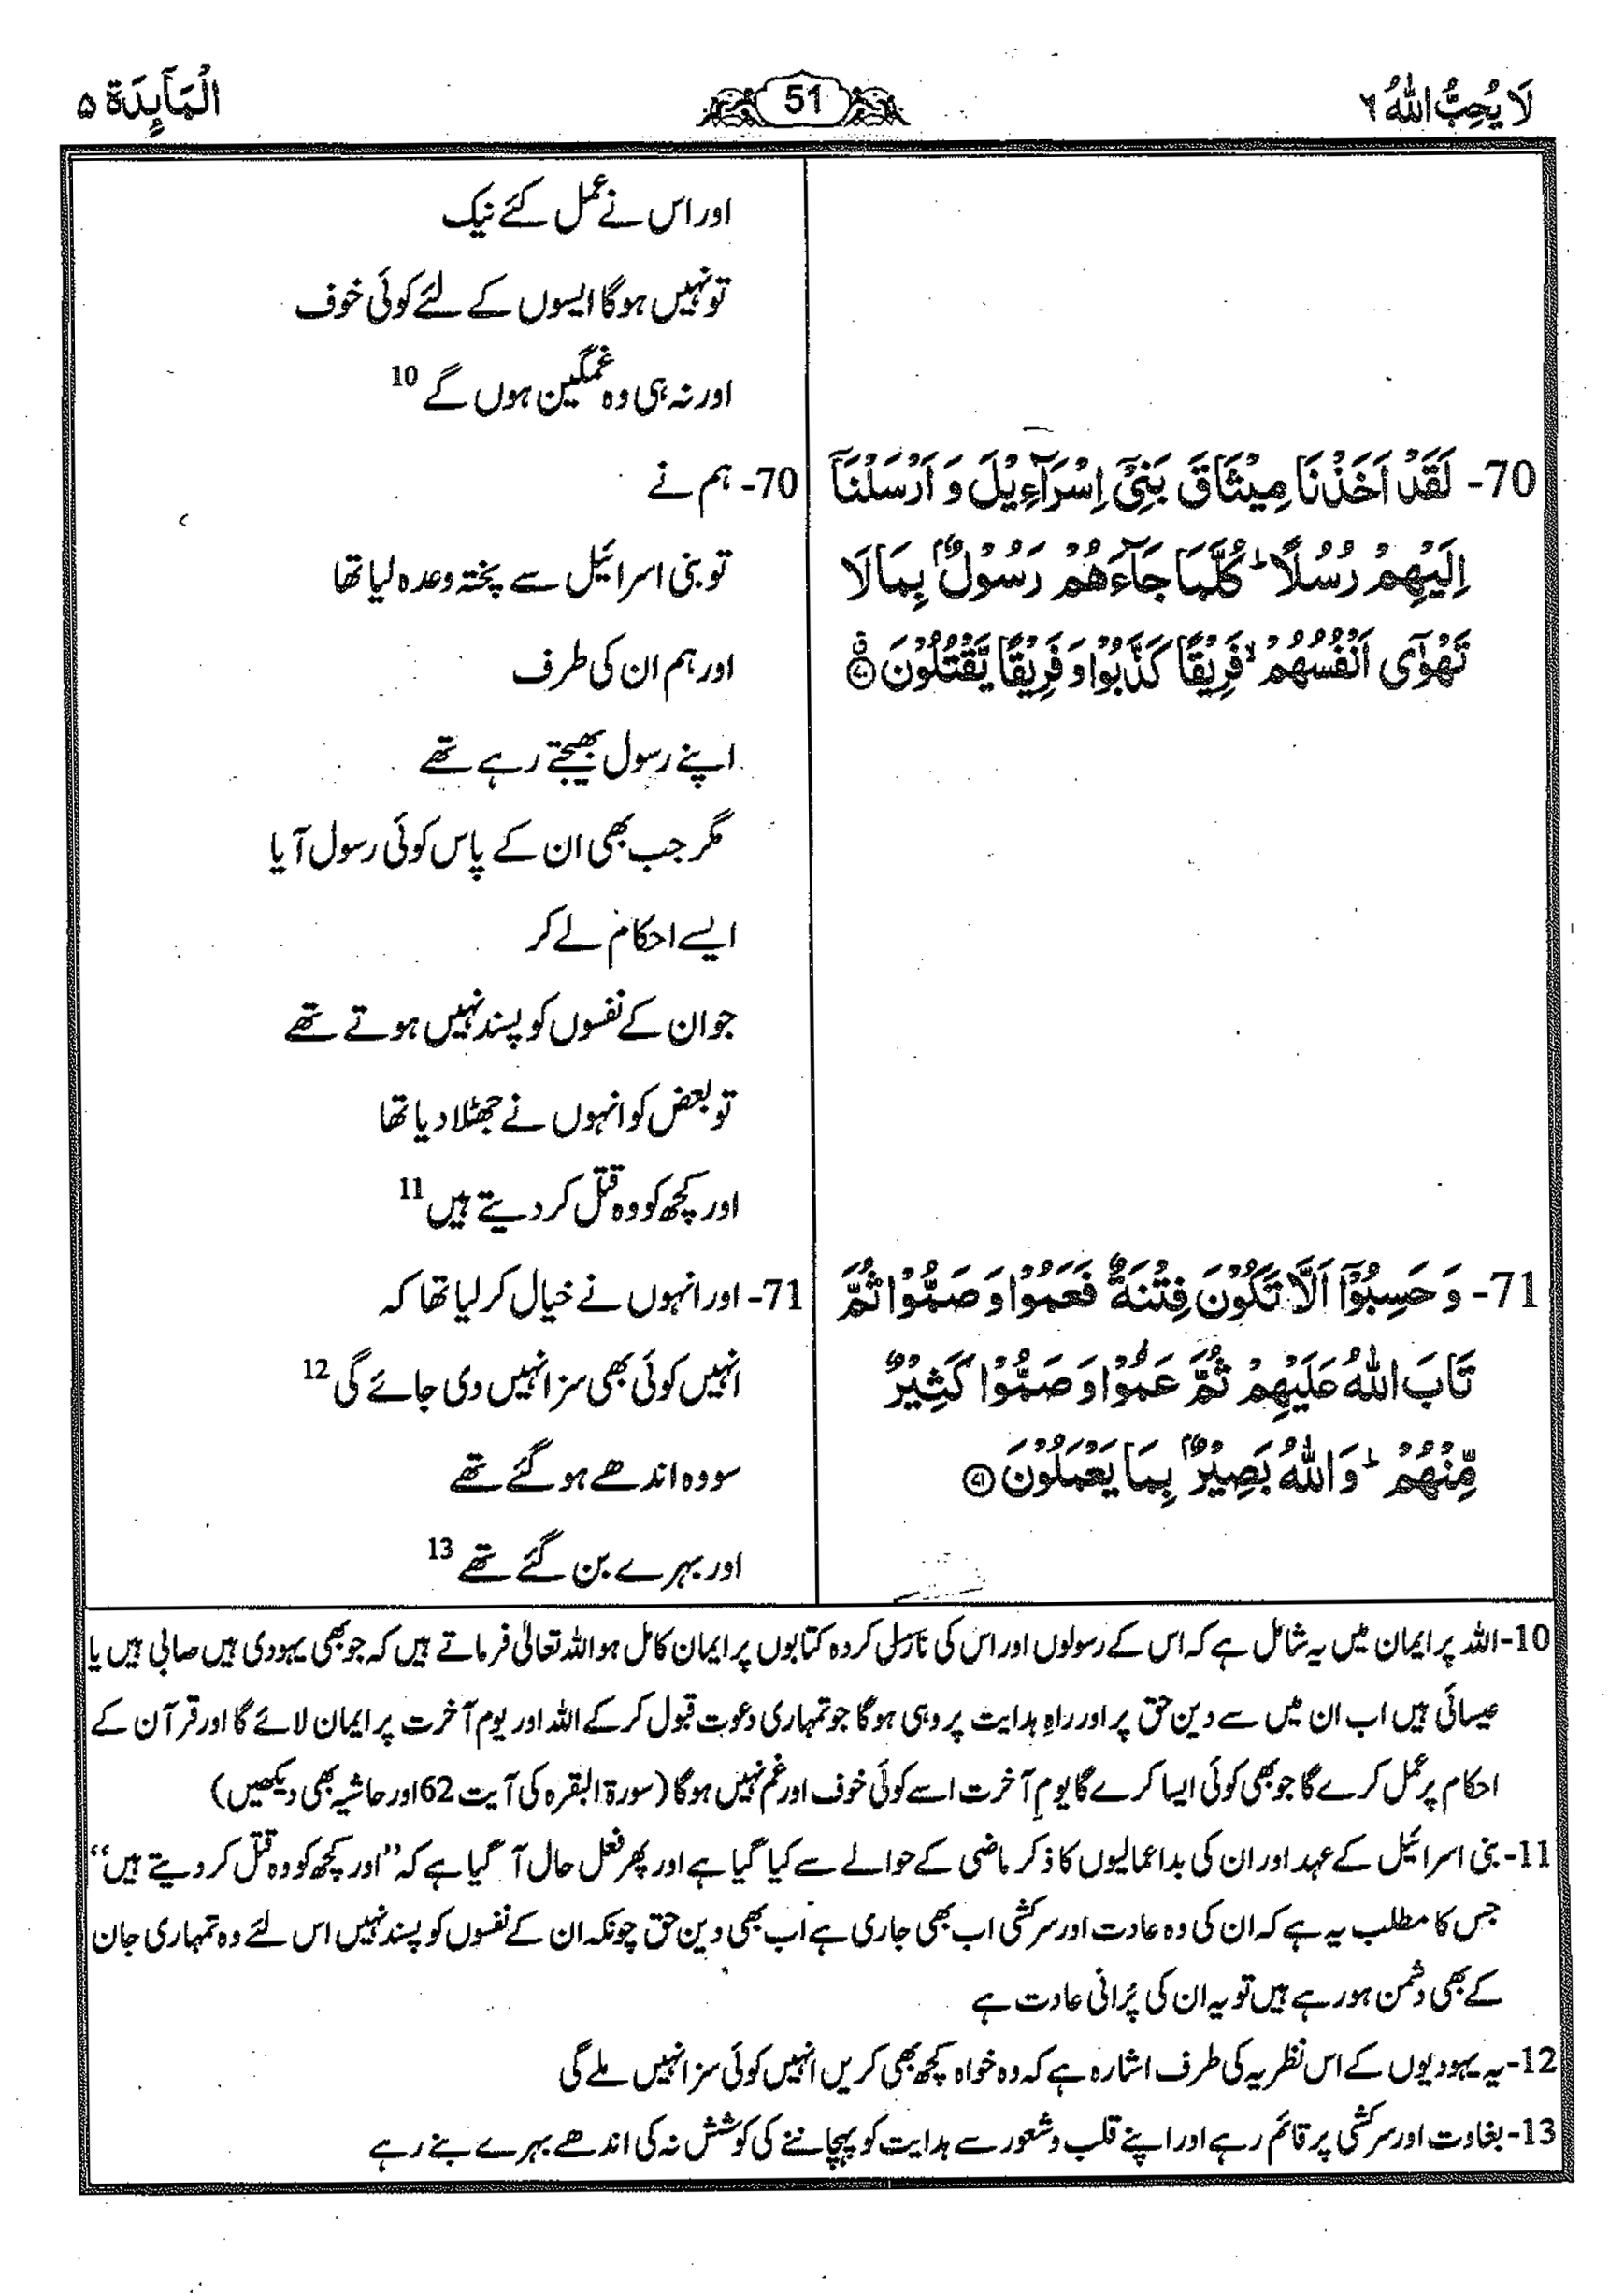 لَا يُحِبُّ اللّٰهُ ٦
51
الْمَآىِٕدَة ۵
اور اس نے عمل کئے نیک
تو نہیں ہوگا ایسوں کے لئے کوئی خوف
اور نہ ہی وہ غمگین ہوں گے 10
70- لَقَدْ اَخَذْنَا مِيْثَاقَ بَنِيْٓ اِسْرَآءِيْلَ وَ اَرْسَلْنَآ
اِلَيْهِمْ رُسُلًا ؕ كُلَّمَا جَآءَهُمْ رَسُوْلٌۢ بِمَا لَا
تَهْوٰٓى اَنْفُسُهُمْ ۙ فَرِيْقًا كَذَّبُوْا وَ فَرِيْقًا يَّقْتُلُوْنَ ۗ ﴿۷۰﴾
70- ہم نے
تو بنی اسرائیل سے پختہ وعدہ لیا تھا
اور ہم ان کی طرف
اپنے رسول بھیجتے رہے تھے
مگر جب بھی ان کے پاس کوئی رسول آیا
ایسے احکام لے کر
جو ان کے نفسوں کو پسند نہیں ہوتے تھے
تو بعض کو انہوں نے جھٹلا دیا تھا
اور کچھ کو وہ قتل کر دیتے ہیں 11
71- وَ حَسِبُوْٓا اَلَّا تَكُوْنَ فِتْنَةٌ فَعَمُوْا وَ صَمُّوْا ثُمَّ
تَابَ اللّٰهُ عَلَيْهِمْ ثُمَّ عَمُوْا وَ صَمُّوْا كَثِيْرٌ
مِّنْهُمْ ؕ وَ اللّٰهُ بَصِيْرٌۢ بِمَا يَعْمَلُوْنَ ﴿۷۱﴾
71- اور انہوں نے خیال کر لیا تھا کہ
انہیں کوئی بھی سزا نہیں دی جائے گی 12
سو وہ اندھے ہو گئے تھے
اور بہرے بن گئے تھے 13
10- اللہ پر ایمان میں یہ شامل ہے کہ اس کے رسولوں اور اس کی نازل کردہ کتابوں پر ایمان کامل ہو اللہ تعالیٰ فرماتے ہیں کہ جو بھی یہودی ہیں صابی ہیں یا
عیسائی ہیں اب ان میں سے دین حق پر اور راہِ ہدایت پر وہی ہوگا جو تمہاری دعوت قبول کر کے اللہ اور یوم آخرت پر ایمان لائے گا اور قرآن کے
احکام پر عمل کرے گا جو بھی کوئی ایسا کرے گا یومِ آخرت اسے کوئی خوف اور غم نہیں ہوگا (سورۃ البقرہ کی آیت 62 اور حاشیہ بھی دیکھیں)
11- بنی اسرائیل کے عہد اور ان کی بداعمالیوں کا ذکر ماضی کے حوالے سے کیا گیا ہے اور پھر فعل حال آ گیا ہے کہ ’’اور کچھ کو وہ قتل کر دیتے ہیں‘‘
جس کا مطلب یہ ہے کہ ان کی وہ عادت اور سرکشی اب بھی جاری ہے اب بھی دین حق چونکہ ان کے نفسوں کو پسند نہیں اس لئے وہ تمہاری جان
کے بھی دشمن ہو رہے ہیں تو یہ ان کی پُرانی عادت ہے
12- یہ یہودیوں کے اس نظریہ کی طرف اشارہ ہے کہ وہ خواہ کچھ بھی کریں انہیں کوئی سزا نہیں ملے گی
13- بغاوت اور سرکشی پر قائم رہے اور اپنے قلب و شعور سے ہدایت کو پہچاننے کی کوشش نہ کی اندھے بہرے بنے رہے